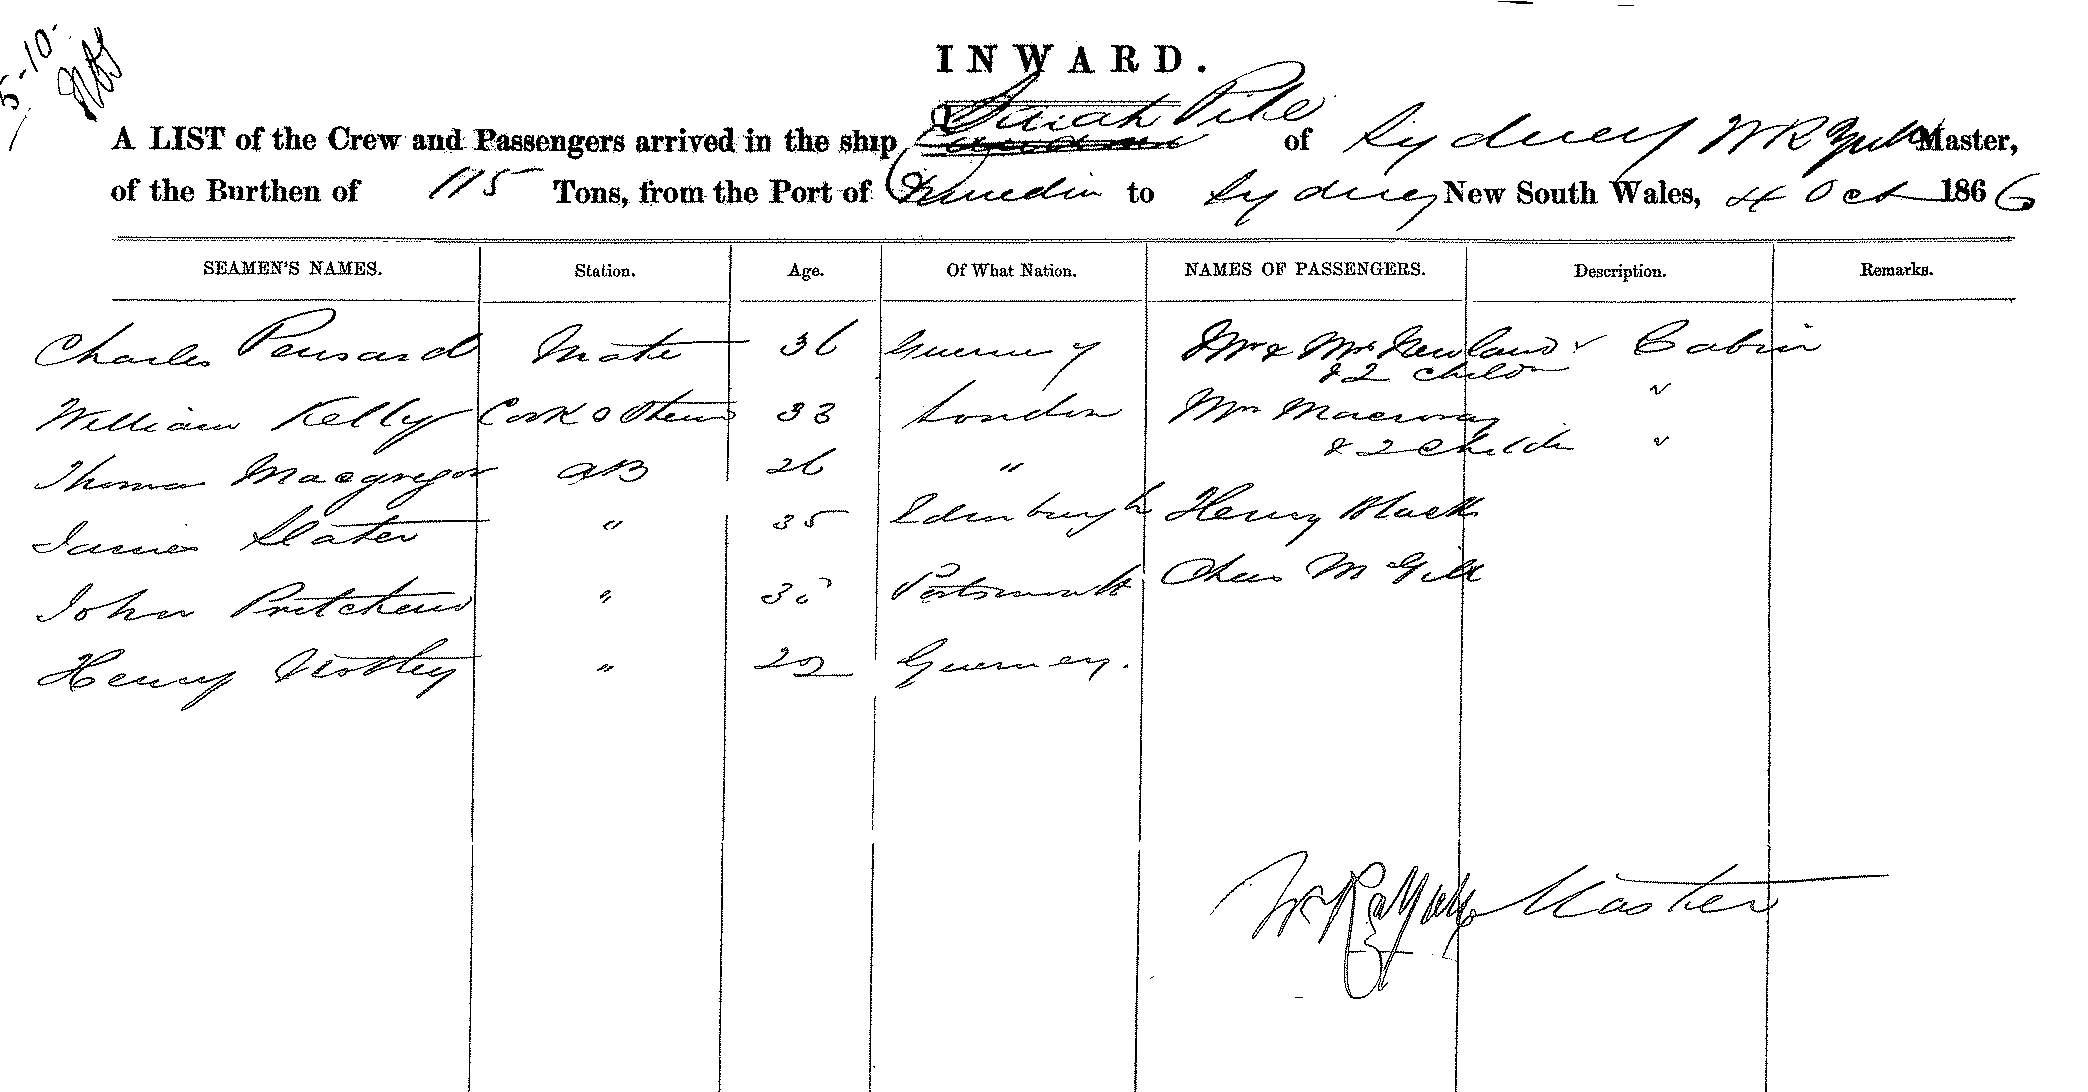 5-10-
INWARD.
Sarah Pile
A LIST of the Crew and Passengers arrived in the ship of Sydney W R Master,
of the Burthen of 115 Tons, from the Port of Dunedin to Sydney New South Wales, 4 Oct 1866
SEAMEN'S NAMES. Station. Age. Of What Nation. NAMES OF PASSENGERS. Description. Remarks.
Charles Mate 36 Guernsey Mr & Mrs Newland Cabin
& 2 childn "
William Kelly Cook & Stew 33 London Mrs
& 2 childn "
Thomas Macgregor AB 26 "
James Slater " 35 Edinburgh Henry Black
John " Portsmouth Chas McGill
Henry " Guernsey.
W R Master